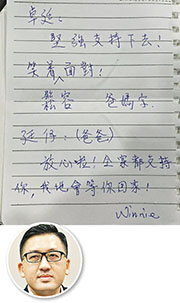 卓廷：
堅強支持下去！
笑着面對！
鬆容 爸媽字
廷仔：(爸爸)
放心啦！全家都支持
你，我地會等你回來！
Winnie